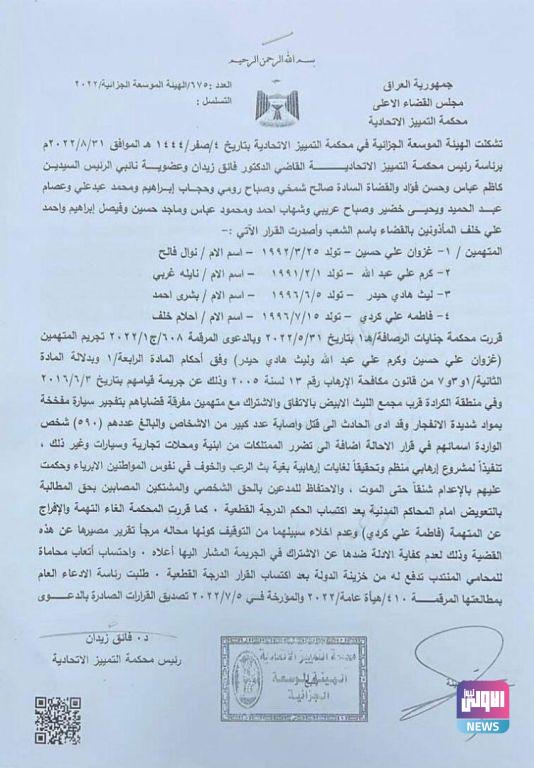 بسم الله الرحمن الرحيم
جمهورية العراق
مجلس القضاء الاعلى
محكمة التمييز الاتحادية
العدد : ٦٧٥/الهيئة الموسعة الجزائية/٢٠٢٢
التسلسل :
تشكلت الهيئة الموسعة الجزائية في محكمة التمييز الاتحادية بتاريخ ٤/صفر/١٤٤٤ هـ الموافق ٢٠٢٢/٨/٣١م
برئاسة رئيس محكمة التمييز الاتحاديـــة القاضي الدكتور فائق زيدان وعضوية نائبي الرئيس السيدين
كاظم عباس وحسن فؤاد والقضاة السادة صالح شمخي وصباح رومي وحجاب إبراهيم ومحمد عبدعلي وعصام
عبد الحميد ويحيى خضير وصباح عريبي وشهاب احمد ومحمود عباس وماجد حسين وفيصل إبراهيم واحمد
علي خلف المأذونين بالقضاء باسم الشعب وأصدرت القرار الآتي :-
المتهمين / ١- غزوان علي حسين - تولد ١٩٩٢/٣/٢٥ - اسم الام / نوال فالح
٢- كرم علي عبد الله - تولد ١٩٩١/٢/١ - اسم الام / نايله غربي
٣- ليث هادي حيدر - تولد ١٩٩٦/٦/٥ - اسم الام / بشرى احمد
٤- فاطمه علي كردي - تولد ١٩٩٦/٧/١٥ - اسم الام / احلام خلف
قررت محكمة جنايات الرصافة/هـ١ بتاريخ ٢٠٢٢/٥/٣١ وبالدعوى المرقمة ٦٠٨/ج١/٢٠٢٢ تجريم المتهمين
(غزوان علي حسين وكرم علي عبد الله وليث هادي حيدر) وفق أحكام المادة الرابعة/١ وبدلالة المادة
الثانية/١و٣و٧ من قانون مكافحة الإرهاب رقم ١٣ لسنة ٢٠٠٥ وذلك عن جريمة قيامهم بتاريخ ٢٠١٦/٦/٣
وفي منطقة الكرادة قرب مجمع الليث الابيض بالاتفاق والاشتراك مع متهمين مفرقة قضاياهم بتفجير سيارة مفخخة
بمواد شديدة الانفجار وقد ادى الحادث الى قتل وإصابة عدد كبير من الاشخاص والبالغ عددهم (٥٩٠) شخص
الواردة اسمائهم في قرار الاحالة اضافة الى تضرر الممتلكات من ابنية ومحلات تجارية وسيارات وغير ذلك ،
تنفيذاً لمشروع إرهابي منظم وتحقيقاً لغايات إرهابية بغية بث الرعب والخوف في نفوس المواطنين الابرياء وحكمت
عليهم بالإعدام شنقاً حتى الموت ، والاحتفاظ للمدعين بالحق الشخصي والمشتكين المصابين بحق المطالبة
بالتعويض امام المحاكم المدنية بعد اكتساب الحكم الدرجة القطعية ٠ كما قررت المحكمة الغاء التهمة والإفراج
عن المتهمة (فاطمة علي كردي) وعدم اخلاء سبيلهما من التوقيف كونها محاله مرجأ تقرير مصيرها عن هذه
القضية وذلك لعدم كفاية الادلة ضدها عن الاشتراك في الجريمة المشار اليها أعلاه ٠ واحتساب أتعاب محاماة
للمحامي المنتدب تدفع له من خزينة الدولة بعد اكتساب القرار الدرجة القطعية ٠ طلبت رئاسة الادعاء العام
بمطالعتها المرقمــة ٤١٠/هيأة عامة/٢٠٢٢ والمؤرخة في ٢٠٢٢/٧/٥ تصديق القرارات الصادرة بالدعــوى
د٠ فائق زيدان
رئيس محكمة التمييز الاتحادية
محكمة التمييز الاتحادية
الهيئة الموسعة
الجزائية
الاولى نيوز
NEWS